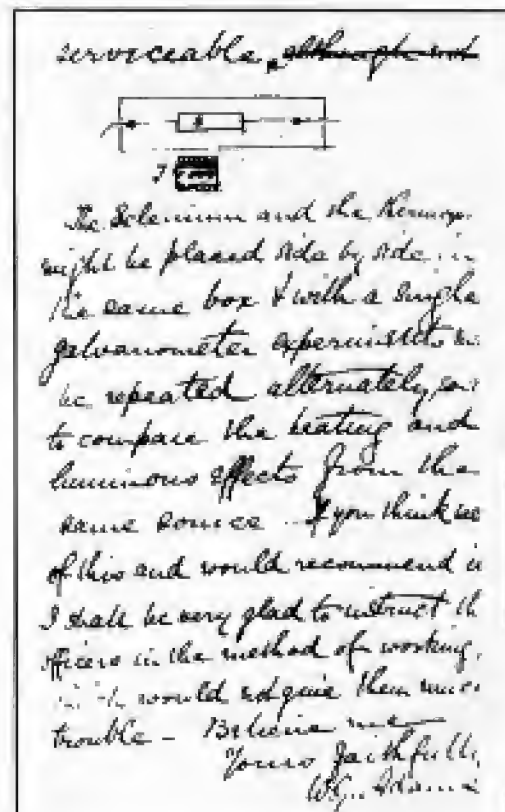 serviceable, although not
The Selenium and the
might be placed side by side in
the same box & with a single
galvanometer experiments
be repeated alternately so
to compare the heating and
luminous effects from the
same source. If you think
of this and would recommend it
I shall be very glad to instruct th
officers in the method of working.
would not give them much
trouble - Believe me
Yours faithfull
W.G. Adams